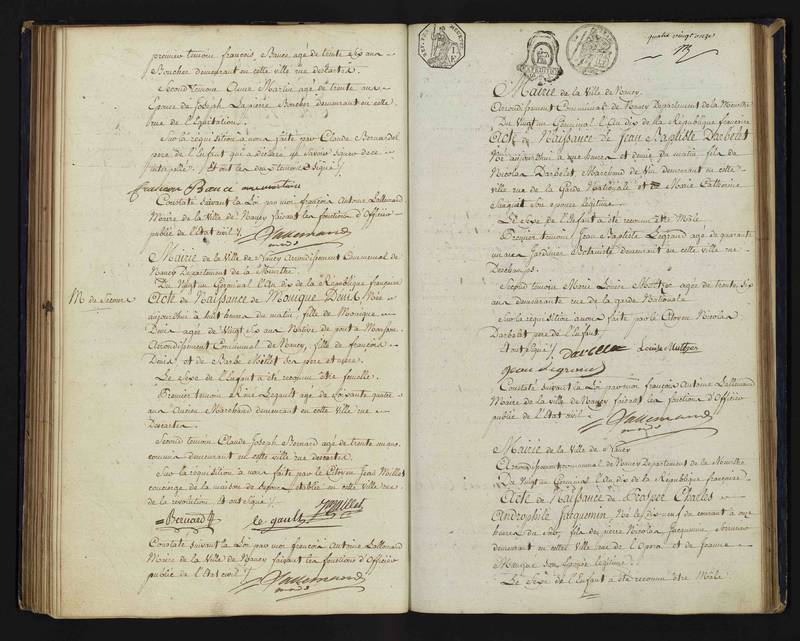 premier temoin françois Bauce agé de trente six ans
Boucher demeurant en cette ville rue descartes.
Second temoin Anne Martin agé de trente ans
Epouse de Joseph Lapierre Boucher demeurant en cette
rue de l'Equitation
Sur la requisition à nous faite par Claude Bernardel
pere de l'Enfant qui a déclaré ne savoir signer de ce
interpellé. Et ont les deux temoins signé
françois Bauce
Constaté suivant la Loi par moi françois Antoine Lallemand
Maire de la Ville de Nancy faisant les fonctions d'Officier
public de l'Etat civil
Lallemand
Mairie de la Ville de Nancy Arrondissement Communal de
Nancy Departement de la Meurthe
Du Vingt un Germinal l'An dix de la République françoise
M. de Secours
Acte de Naissance de Monique Denis, Née
aujourd'hui à huit heures du matin, fille de Monique
Denis agée de Vingt six ans Native de pont à Mousson
Arrondissement Communal de Nancy, fille de françois
Denis, et de Barbe Millet ses pere et mere.
Le Sexe de l'Enfant a été reconnu être femelle.
Premier temoin Legault agé de soixante quatre
ans Ancien Marchand demeurant en cette Ville rue
Descartes
Second temoin Claude Joseph Bernard agé de trente un ans
commis demeurant en cette ville rue descartes
Sur la requisition à nous faite par le Citoyen Jean Millet
concierge de la maison de Secours, établie en cette Ville rue
de la revolution. Et ont signé
Bernard Le gault JMillet
Constaté suivant la Loi par moi françois Antoine Lallemand
Maire de la Ville de Nancy faisant les fonctions d'Officier
public de l'Etat civil
Lallemand
quatre vingt onze
Mairie de la Ville de Nancy
Arrondissement Communal de Nancy Departement de la Meurthe
Du Vingt un Germinal l'An dix de la République françoise
Acte de Naissance de Jean Baptiste Darbelet
Né aujourd'hui à une heure et demie du matin, fils de
Nicolas Darbelet, Marchand de Vin demeurant en cette
ville rue de la Garde Nationale et de Marie Catherine
son epouse légitime.
Le Sexe de l'Enfant a été reconnu être Mâle
Premier temoin Jean Baptiste Legrand agé de quarante
un ans Jardinier Botaniste demeurant en cette ville rue
Deschamps.
Second temoin Marie Louise Mutzer agée de trente six
ans demeurante rue de la garde Nationale
Sur la requisition à nous faite par le Citoyen Nicolas
Darbelet pere de l'Enfant
Et ont signé Darbelet Louise Mutzer
Jean Legrand
Constaté suivant la Loi par moi françois Antoine Lallemand
Maire de la ville de Nancy faisant les fonctions d'Officier
public de l'Etat civil
Lallemand
Mairie de la Ville de Nancy
Arrondissement communal de Nancy Departement de la Meurthe
Du Vingt un Germinal l'An dix de la République françoise
Acte de Naissance de Prosper Charles
Androphile Jacquemin, Né le dix neuf du courant à onze
heures du soir, fils de pierre Nicolas Jacquemin,
demeurant en cette Ville rue de l'Opera et de Jeanne
Monique son Epouse légitime
Le Sexe de l'Enfant a été reconnu être Mâle